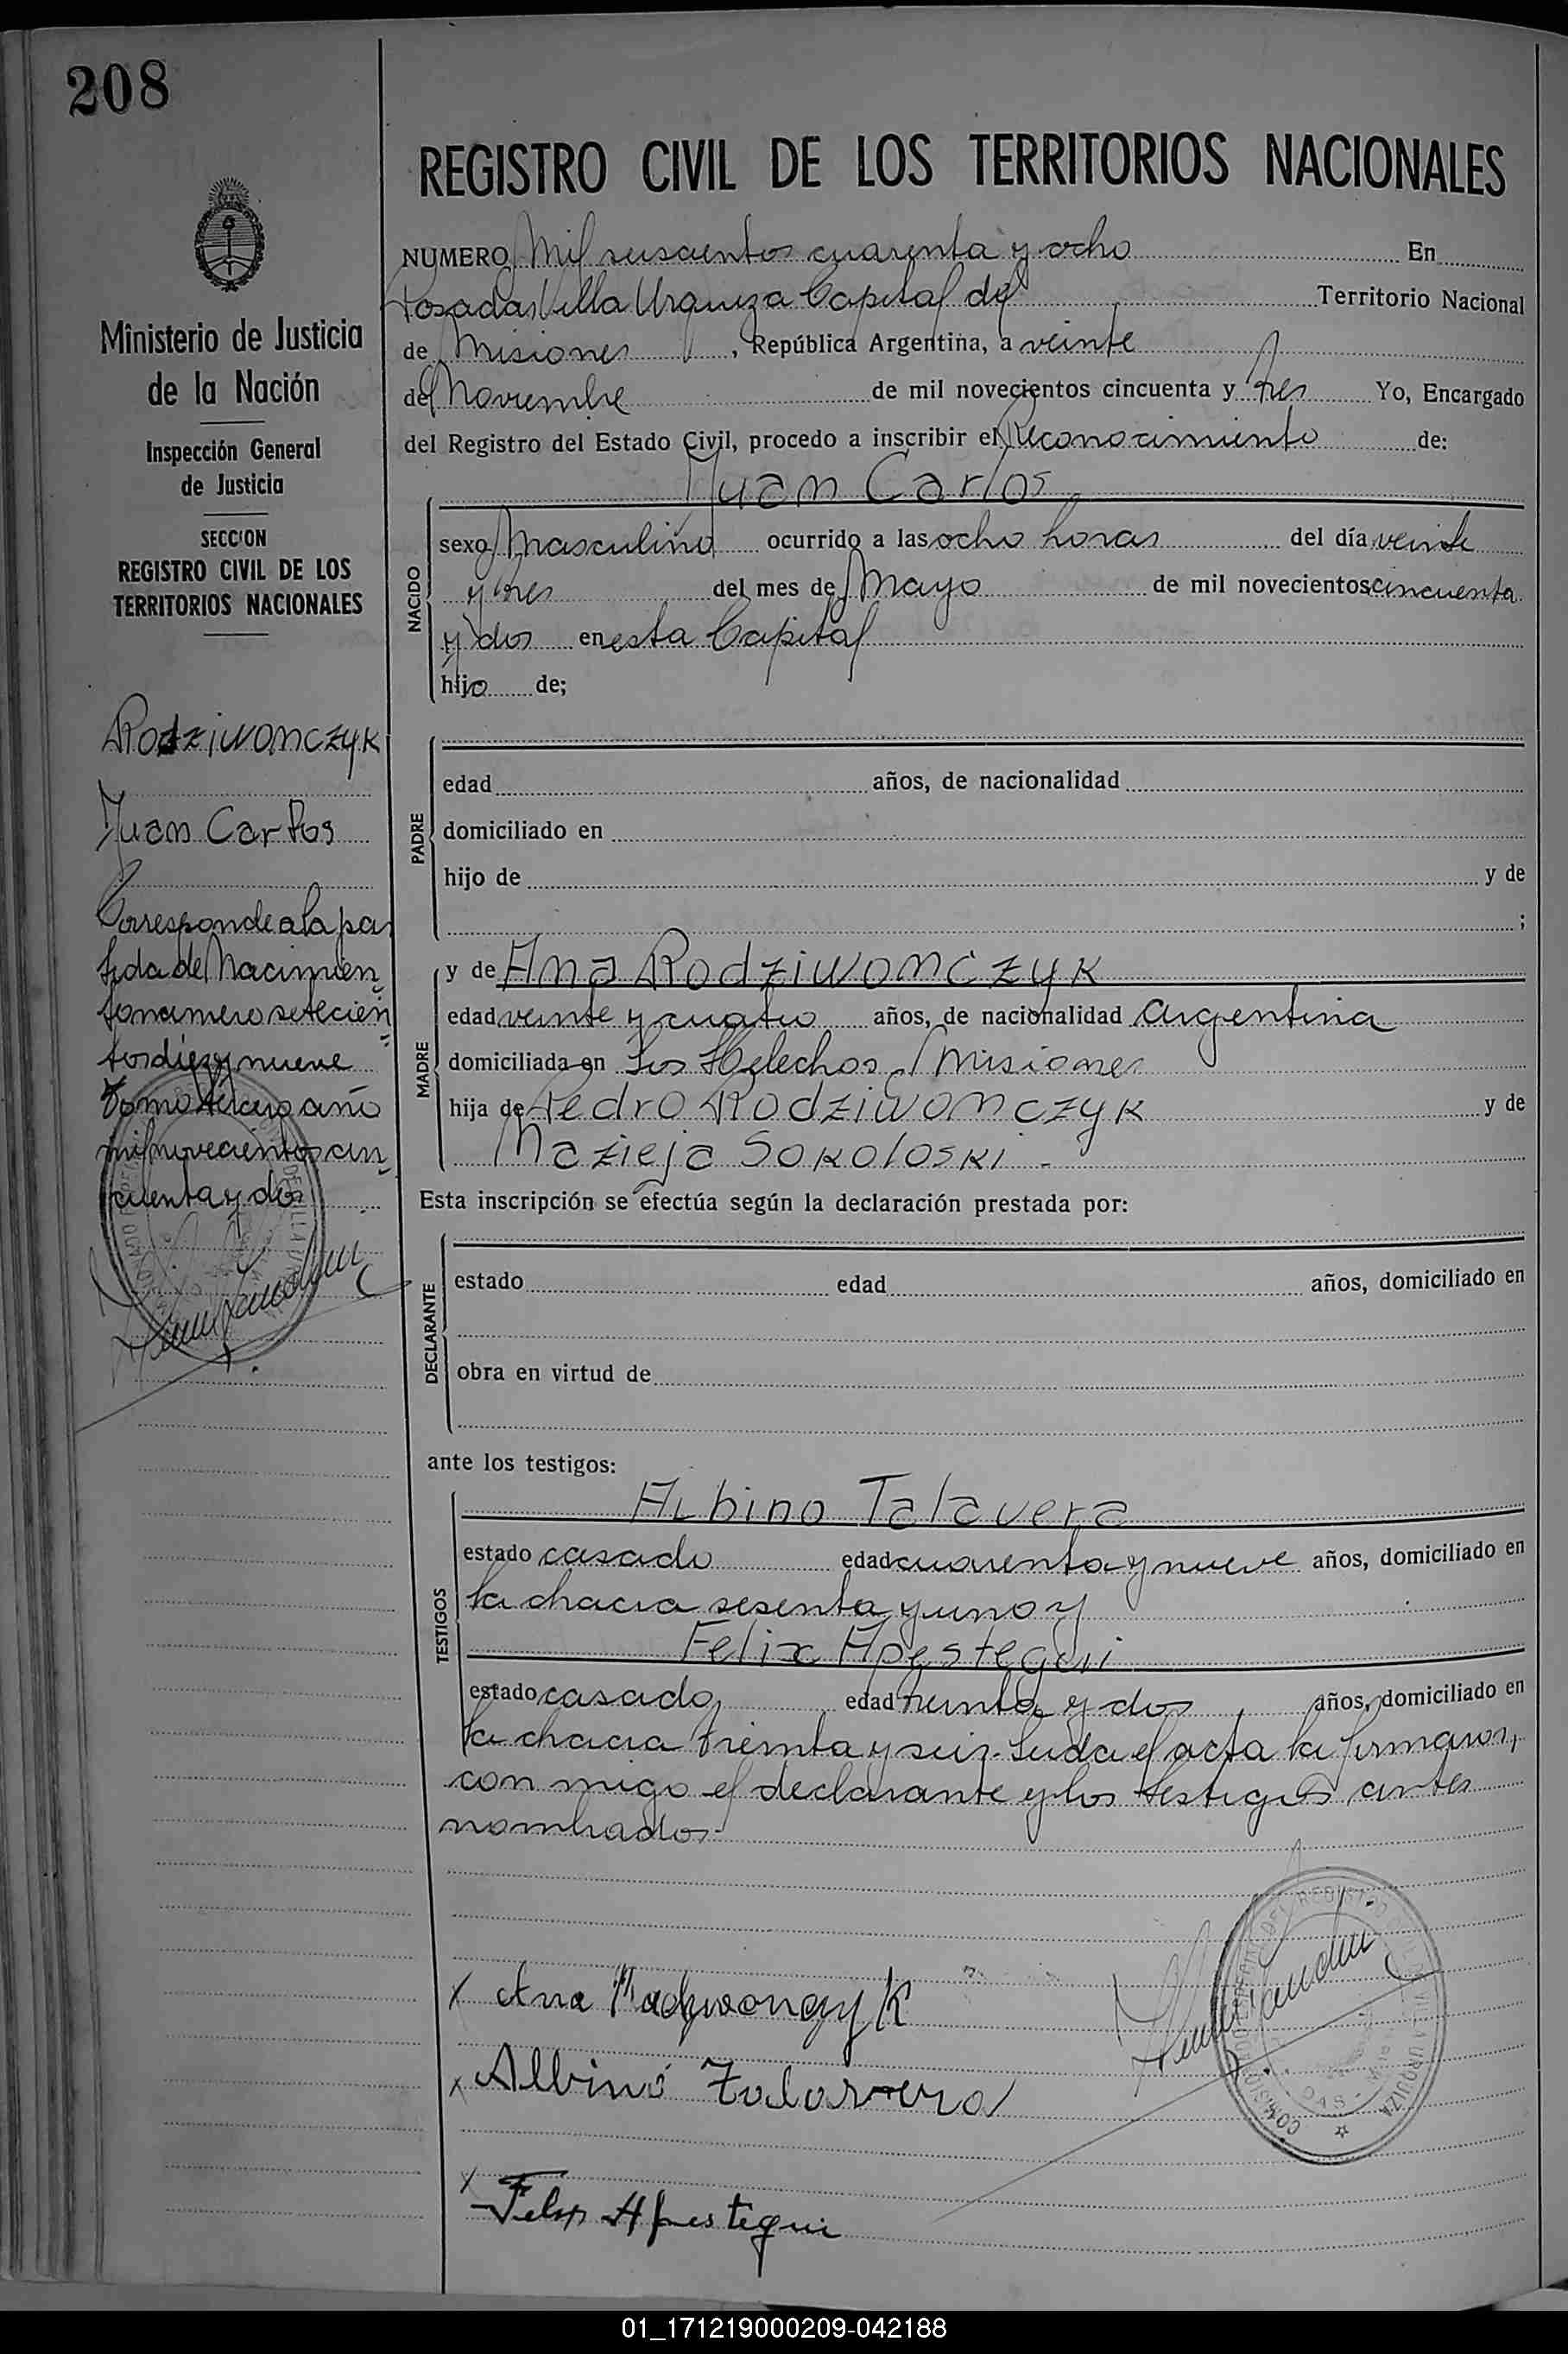 208
Ministerio de Justicia
de la Nación
Inspección General
de Justicia
SECCION
REGISTRO CIVIL DE LOS
TERRITORIOS NACIONALES
Rodziwonczyk
Juan Carlos
Corresponde a la par
tida de Nacimien
to numero setecien
tos diez y nueve
Tomo tercero año
mil novecientos cin
cuenta y dos
REGISTRO CIVIL DE LOS TERRITORIOS NACIONALES
NUMERO Mil seiscientos cuarenta y ocho En
Posadas Villa Urquiza Capital del Territorio Nacional
de Misiones, República Argentina, a veinte
de Noviembre de mil novecientos cincuenta y tres Yo, Encargado
del Registro del Estado Civil, procedo a inscribir el Reconocimiento de:
Juan Carlos
NACIDO
sexo Masculino ocurrido a las ocho horas del día veinte
y tres del mes de Mayo de mil novecientos cincuenta
y dos en esta Capital
hijo de;
PADRE
edad años, de nacionalidad
domiciliado en
hijo de y de
;
MADRE
y de Ana Rodziwonczyk
edad veinte y cuatro años, de nacionalidad Argentina
domiciliada en Los Helechos, Misiones
hija de Pedro Rodziwonczyk y de
Mazieja Sokoloski -
Esta inscripción se efectúa según la declaración prestada por:
DECLARANTE
estado edad años, domiciliado en
obra en virtud de
ante los testigos:
TESTIGOS
Albino Talavera
estado casado edad cuarenta y nueve años, domiciliado en
la chacra sesenta y uno y
Felix Apestegui
estado casado edad treinta y dos años, domiciliado en
la chacra treinta y seis. Leida el acta la firmaron,
con migo el declarante y los testigos antes
nombrados-
x Ana
x Albino Talavera
x Felix Apestegui
01_171219000209-042188